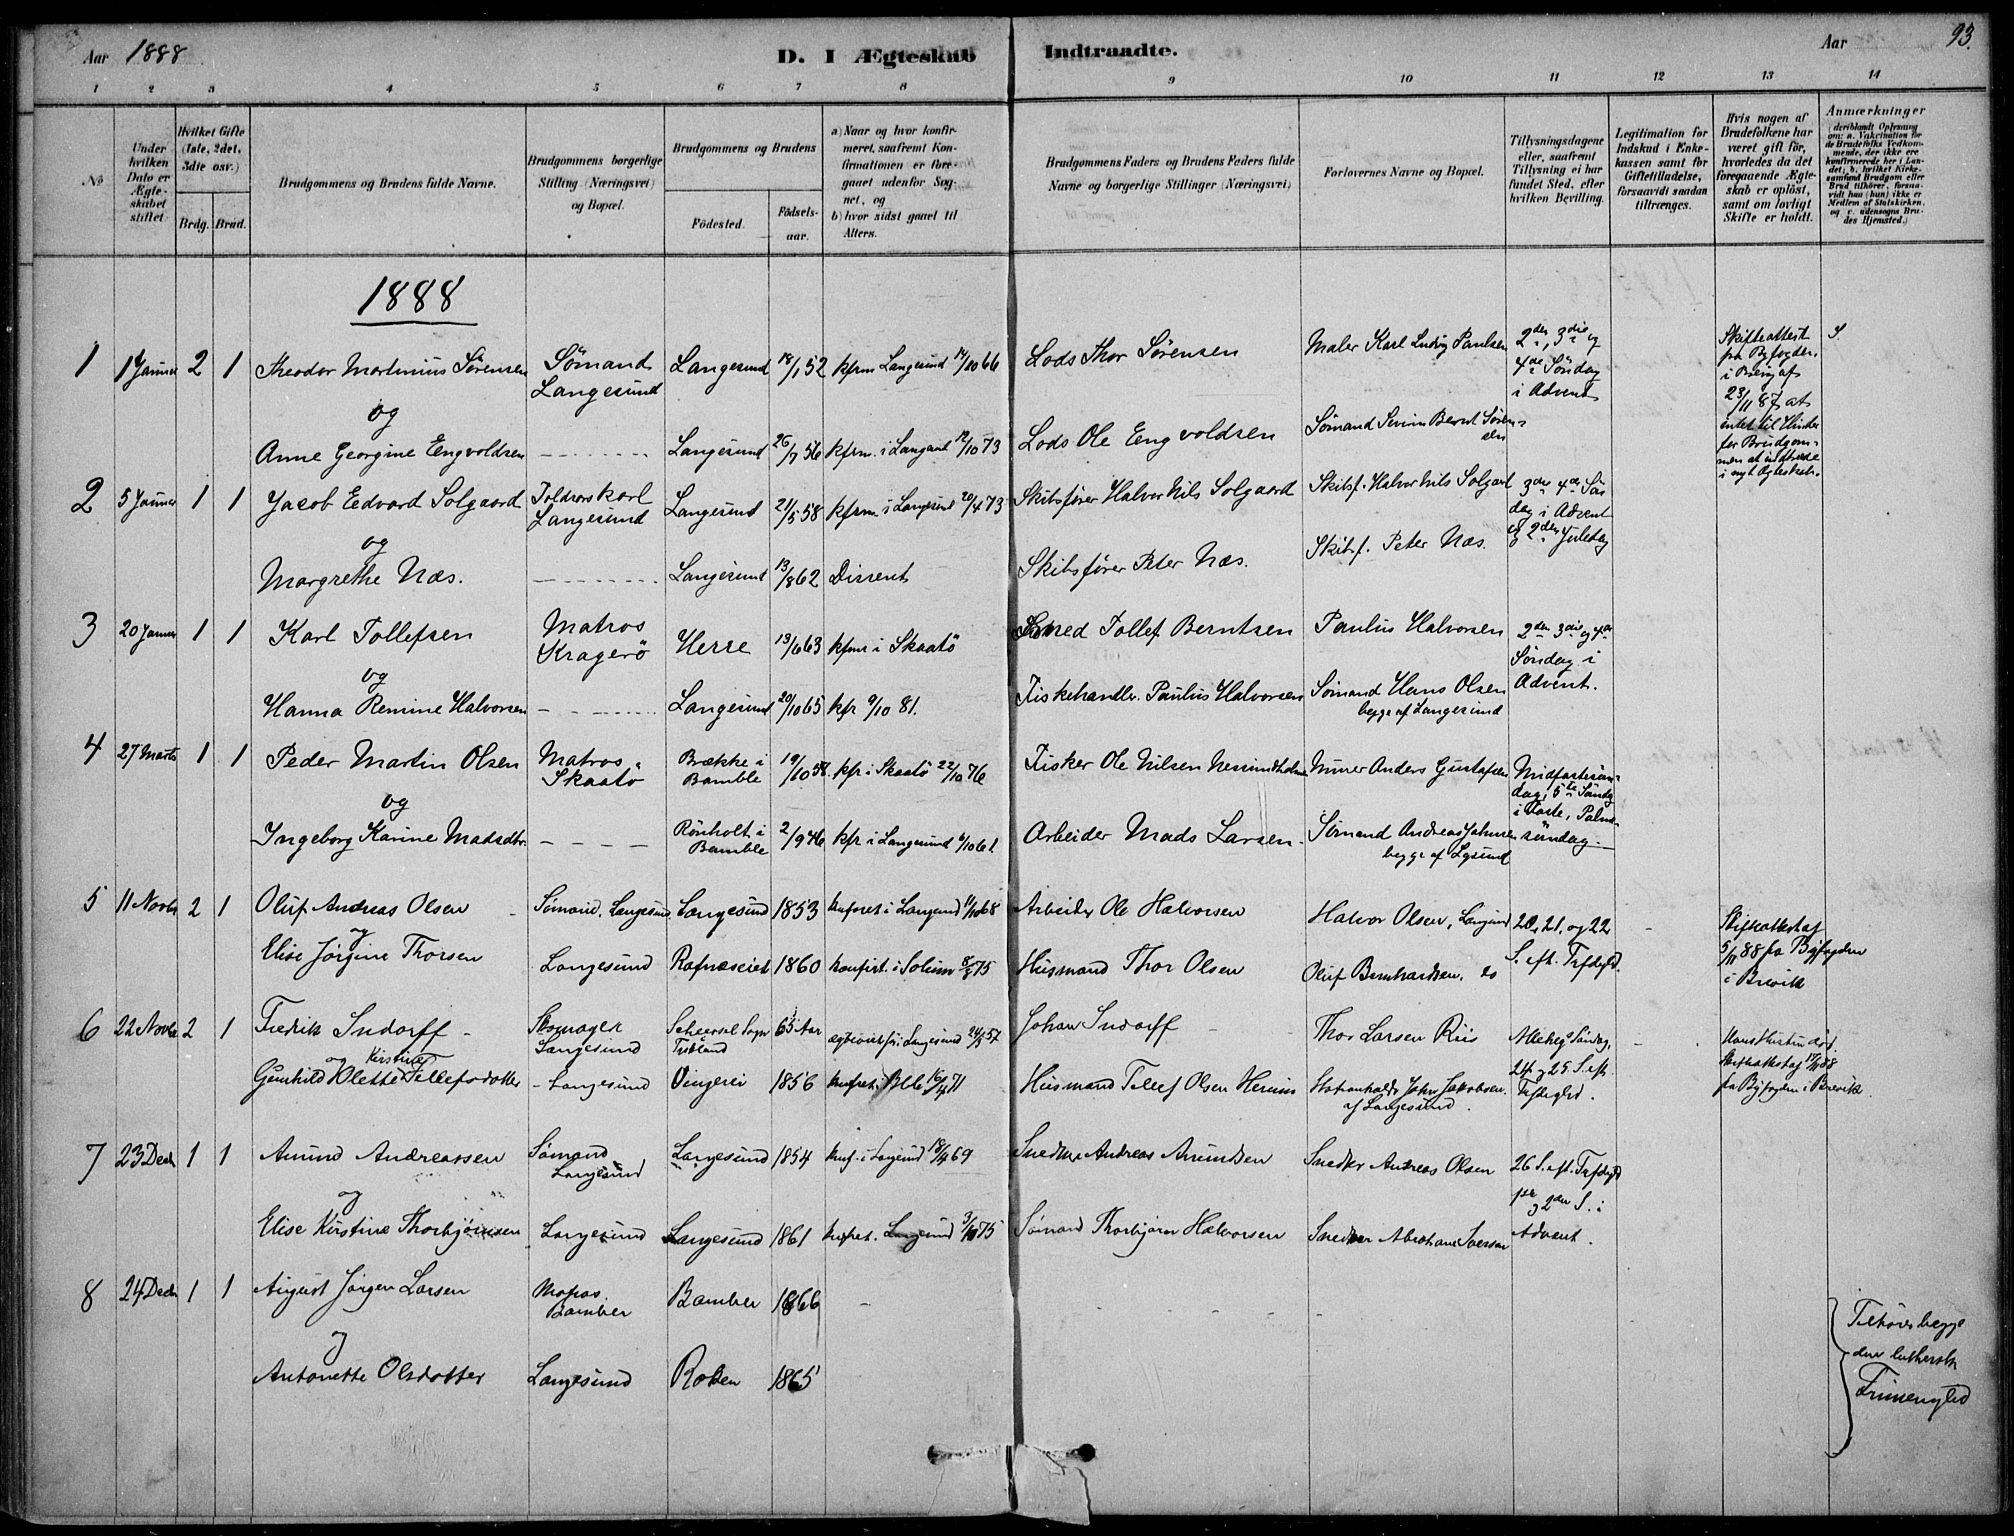 Aar 1888
D. I Ægteskab Indtraadte.
Aar
93.
1 2 3 4 5 6 7 8 9 10 11 12 13 14
No
Under hvilken Dato er Ægteskabet stiftet.
Hvilket Gifte (1ste, 2det, 3die osv.)
Brdg. Brud.
Brudgommens og Brudens fulde Navne.
Brudgommens borgerlige Stilling (Næringsvei) og Bopæl.
Brudgommens og Brudens
Fødested.
Fødsels-aar.
a) Naar og hvor konfirmeret, saafremt Konfirmationen er foregaaet udenfor Sognet, og
b) hvor sidst gaaet til Alters.
Brudgommens Faders og Brudens Faders fulde Navne og borgerlige Stillinger (Næringsvei)
Forlovernes Navne og Bopæl.
Tillysningsdagene eller, saafremt Tillysning ei har fundet Sted, efter hvilken Bevilling.
Legitimation for Indskud i Enkekassen samt for Giftetilladelse, forsaavidt saadan tiltrænges.
Hvis nogen af Brudefolkene har været gift før, hvorledes da det foregaaende Ægteskab er opløst, samt om lovligt Skifte er holdt.
Anmærkninger
1888
1 1 Januar 2 1 Theodor Martinius Sörensen Sömand Langesund Langesund 18/1 52 kfrm Langesund 14/10 66 Lods Thor Sörensen Maler Karl Ludvig Paulsen 2den, 3die og 4de Söndag i Advent Skifteattest fra Byfogden i Brevig af 23/11 87 at intet til Hinder for Brudgommen at indtræde i nyt Ægteskab.
og
Anne Georgine Eengvoldsen Langesund 26/7 56 kfrm. i Langesund 12/10 73 Lods Ole Eengvoldsen Sömand Severin Bernt Sörensen
2 5 Januar 1 1 Jacob Eedvard Solgaard Toldrorskarl Langesund Langesund 21/5 58 kfrm. i Langesund 20/4 73 Skibsfører Halvor Nils Solgaard Skibsf. Halvor Nils Solgard 3die 4de Søndag i Advent og 2den Juledag
og
Margrethe Næs. Langesund 13/8 62 Dissent Skibsfører Peter Næs. Skibsf. Peter Næs.
3 20 Januar 1 1 Karl Tollefsen Matros Kragerö Herre 13/6 63 kfmr i Skaatö Smed Tollef Berntsen Paulus Halvorsen 2den 3die og 4de Söndag i Advent.
og
Hanna Remine Halvorsen Langesund 20/10 65 kfr 9/10 81. Fiskehandler Paulus Halvorsen Sömand Hans Olsen begge af Langesund
4 27 Marts 1 1 Peder Martin Olsen Matros Skaatö Brække i Bamble 19/10 58. kfr i Skaatö 22/10 76 Fisker Ole Nilsen Murer Anders Gustafsen Midfastesöndag, 5te Söndag i Faste, Palmesöndag.
og
Ingeborg Karine Madsdtr. Rönholt i Bamble 2/9 46 kfr i Langesund 6/10 61 Arbeider Mads Larsen Sömand Andreas Johnsen begge af Lgsund
5 11 Novbr 2 1 Oluf Andreas Olsen Sømand, Langesund Langesund 1853 konfret i Langesund 11/10 68 Arbeider Ole Halvorsen Halvor Olsen, Langesund 20, 21. og 22 S. eft. Trefdgh. Skifteattest af 5/11 88 fra Byfogden i Brevik
og
Elise Jørgine Thorsen Langesund Rafneseiet 1860 konfirt. i Solum 8/5 75 Husmand Thor Olsen Oluf Bernhardsen, do
6 22 Novbr 2 1 Fredrik Indorff Skomager Langesund Sogn 65 Aar Langesund 24/5 57 Johan Indorff Thor Larsen Riis Allehg. Søndag, 24 og 25 S. eft. Trefdghd. Hans Hustru død Skifteattest af 17/11 88 fra Byfogden i Brevik
og Kirstine
Gunhild Olette Tellefsdatter Langesund 1856 konfret. 16/4 71 Husmand Tellef Olsen John Jakobsen af Langesund.
7 23 Decbr 1 1 Amund Andreassen Sømand Langesund Langesund 1854 konf. i Langesund 18/4 69 Snedker Andreas Amundsen Snedker Andreas Olsen 26 S. eft. Trefdghd 1ste og 2den S. i Advent.
og
Elise Kirstine Thorbjørnsen Langesund Langesund 1861 konfret. Langesund 3/10 75 Sømand Thorbjørn Halvorsen Snedker Abraham Iversen
8 24 Decbr 1 1 August Jørgen Larsen Matros. Bamber Bamber 1866
og
Antonette Olsdatter Langesund 1865
Tilhører begge den lutherske Frimenighed